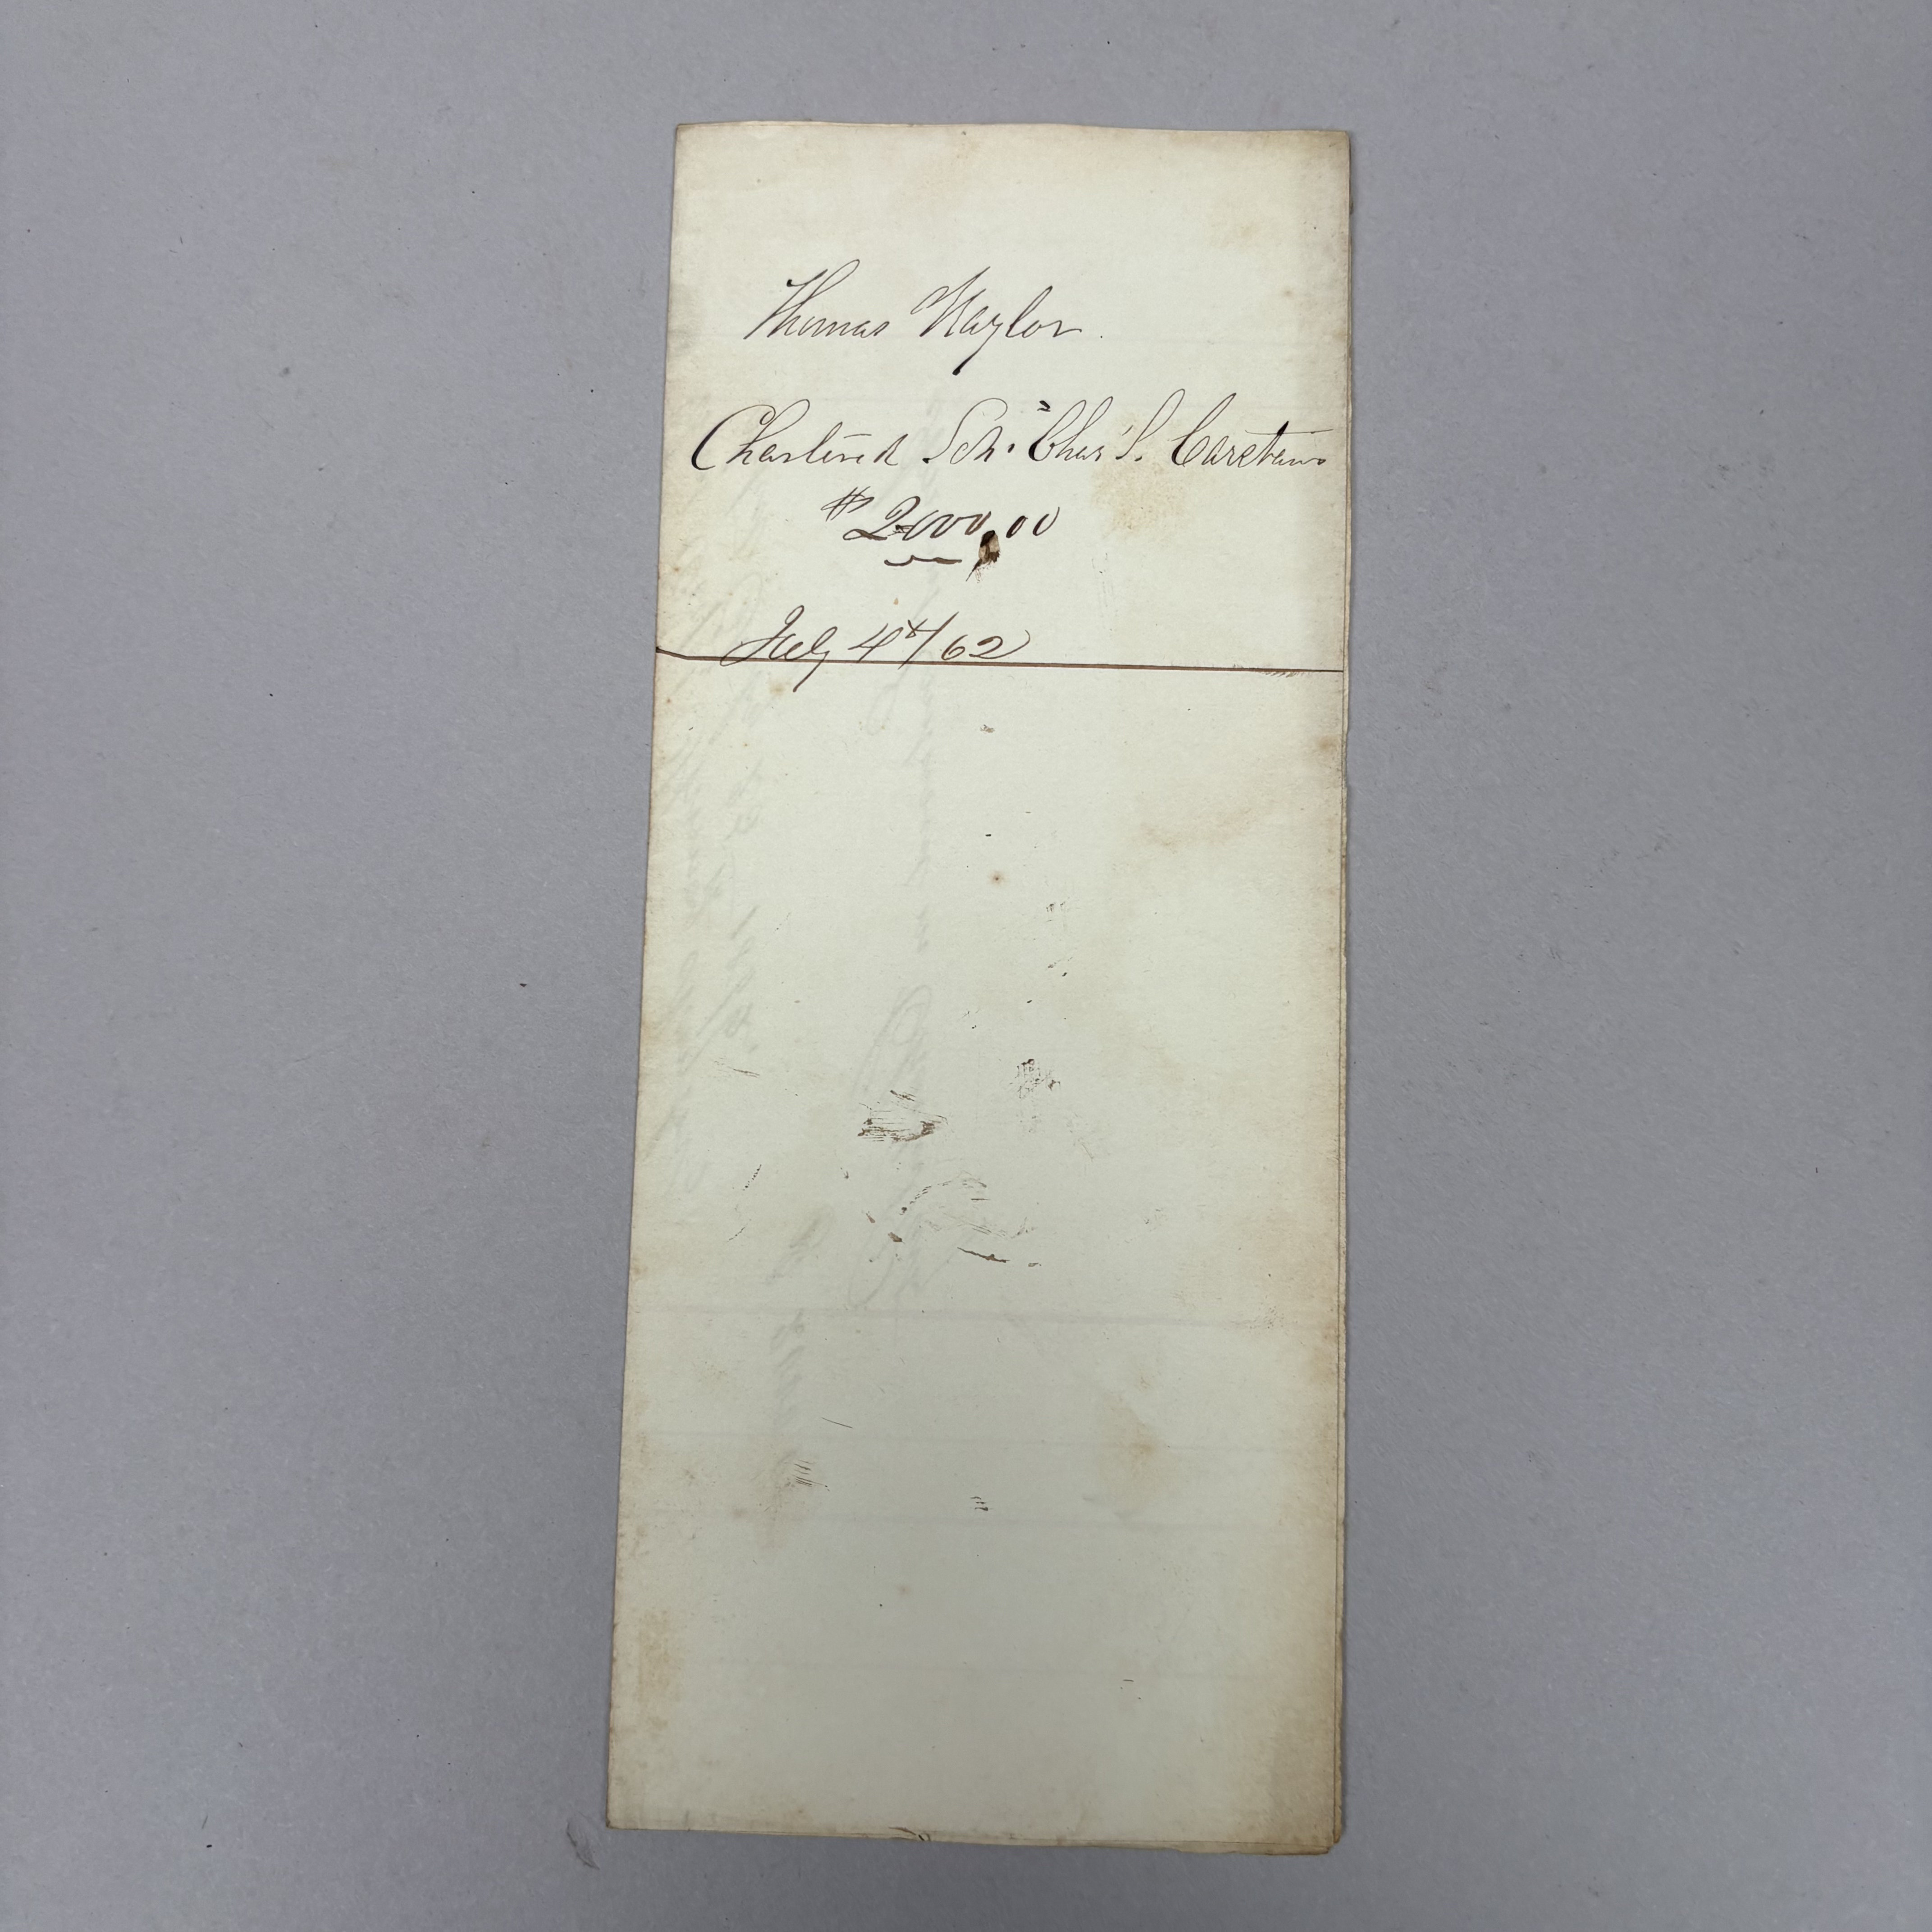 Thomas Naylor.
Chartered Sch. Chas S. Carstairs
$2000,00
July 4th/62